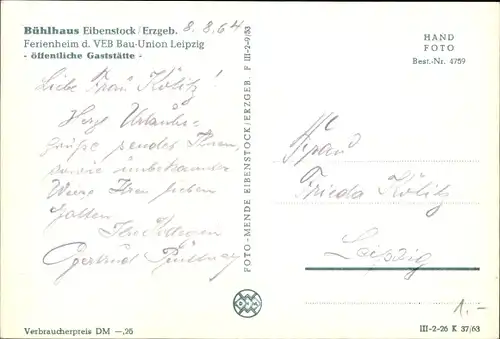 Bühlhaus Eibenstock/Erzgeb. 8.8.64
Ferienheim d. VEB Bau-Union Leipzig
- öffentliche Gaststätte -
Liebe Frau Kölitz!
Herzl. Urlaubs-
grüße sendet Ihnen,
sowie unbekannter
Weise Ihren lieben
Gatten
Ihre
Gertrud
FOTO-MENDE EIBENSTOCK/ERZGEB. F III-2-9/53
HAND
FOTO
Best.-Nr. 4759
Frau
Frieda Kölitz
Leipzig
1.-
Verbraucherpreis DM —,25
III-2-26 K 37/63